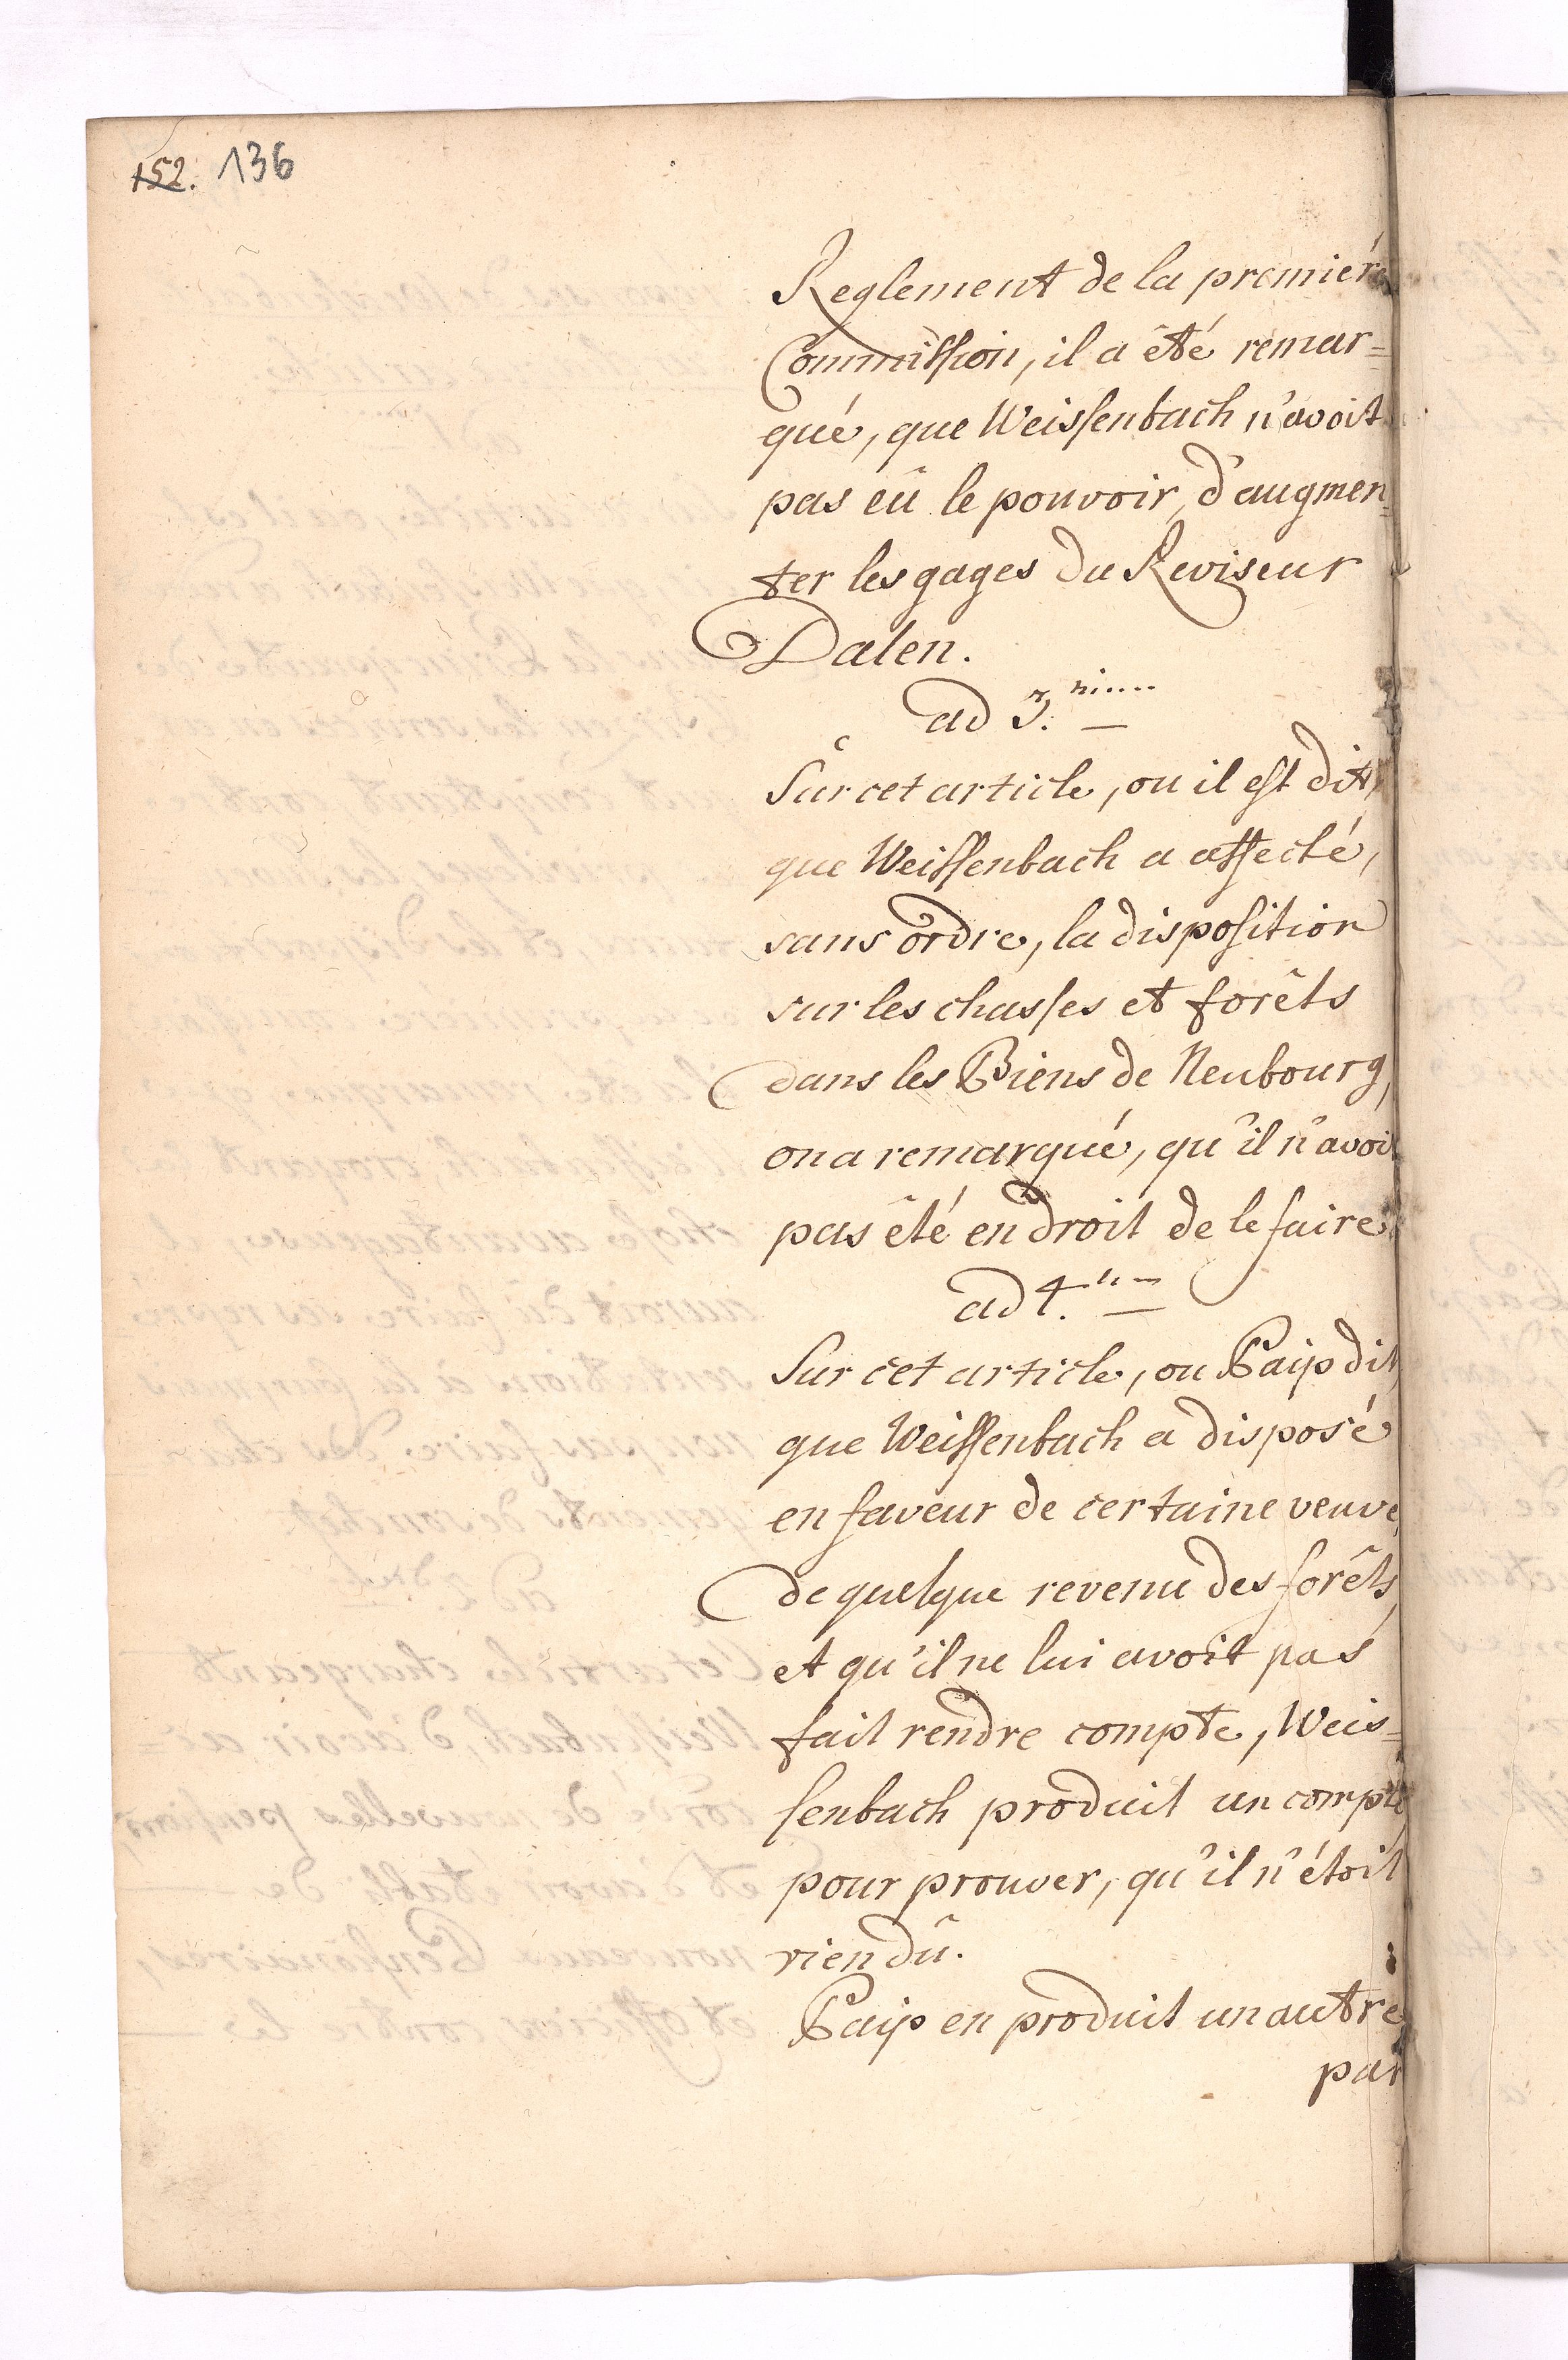 152. 136
Reglement de la premiére
Commission, il a êté remar=
qué, que Weissenbach n'avoit
pas eû le pouvoir, d'augmen=
ter les gages du Reviseur
Dalen.
ad 3.
Sur cet article, ou il est dit,
que Weissenbach a affecté,
sans ordre, la disposition
sur les chasses et forêts
dans les Biens de Neubourg,
on a remarqué, qu'il n'avoit
pas êté en droit de le faire.
ad 4.
Sur cet article, ou Paÿs dit,
que Weissenbach a disposé
en faveur de certaine veuve,
de quelque revenu des forêts,
et qu'il ne lui avoit pas
fait rendre compte, Weis=
senbach produit un compte
pour prouver, qu'il n'étoit
rien dû.
en produit un autre
par